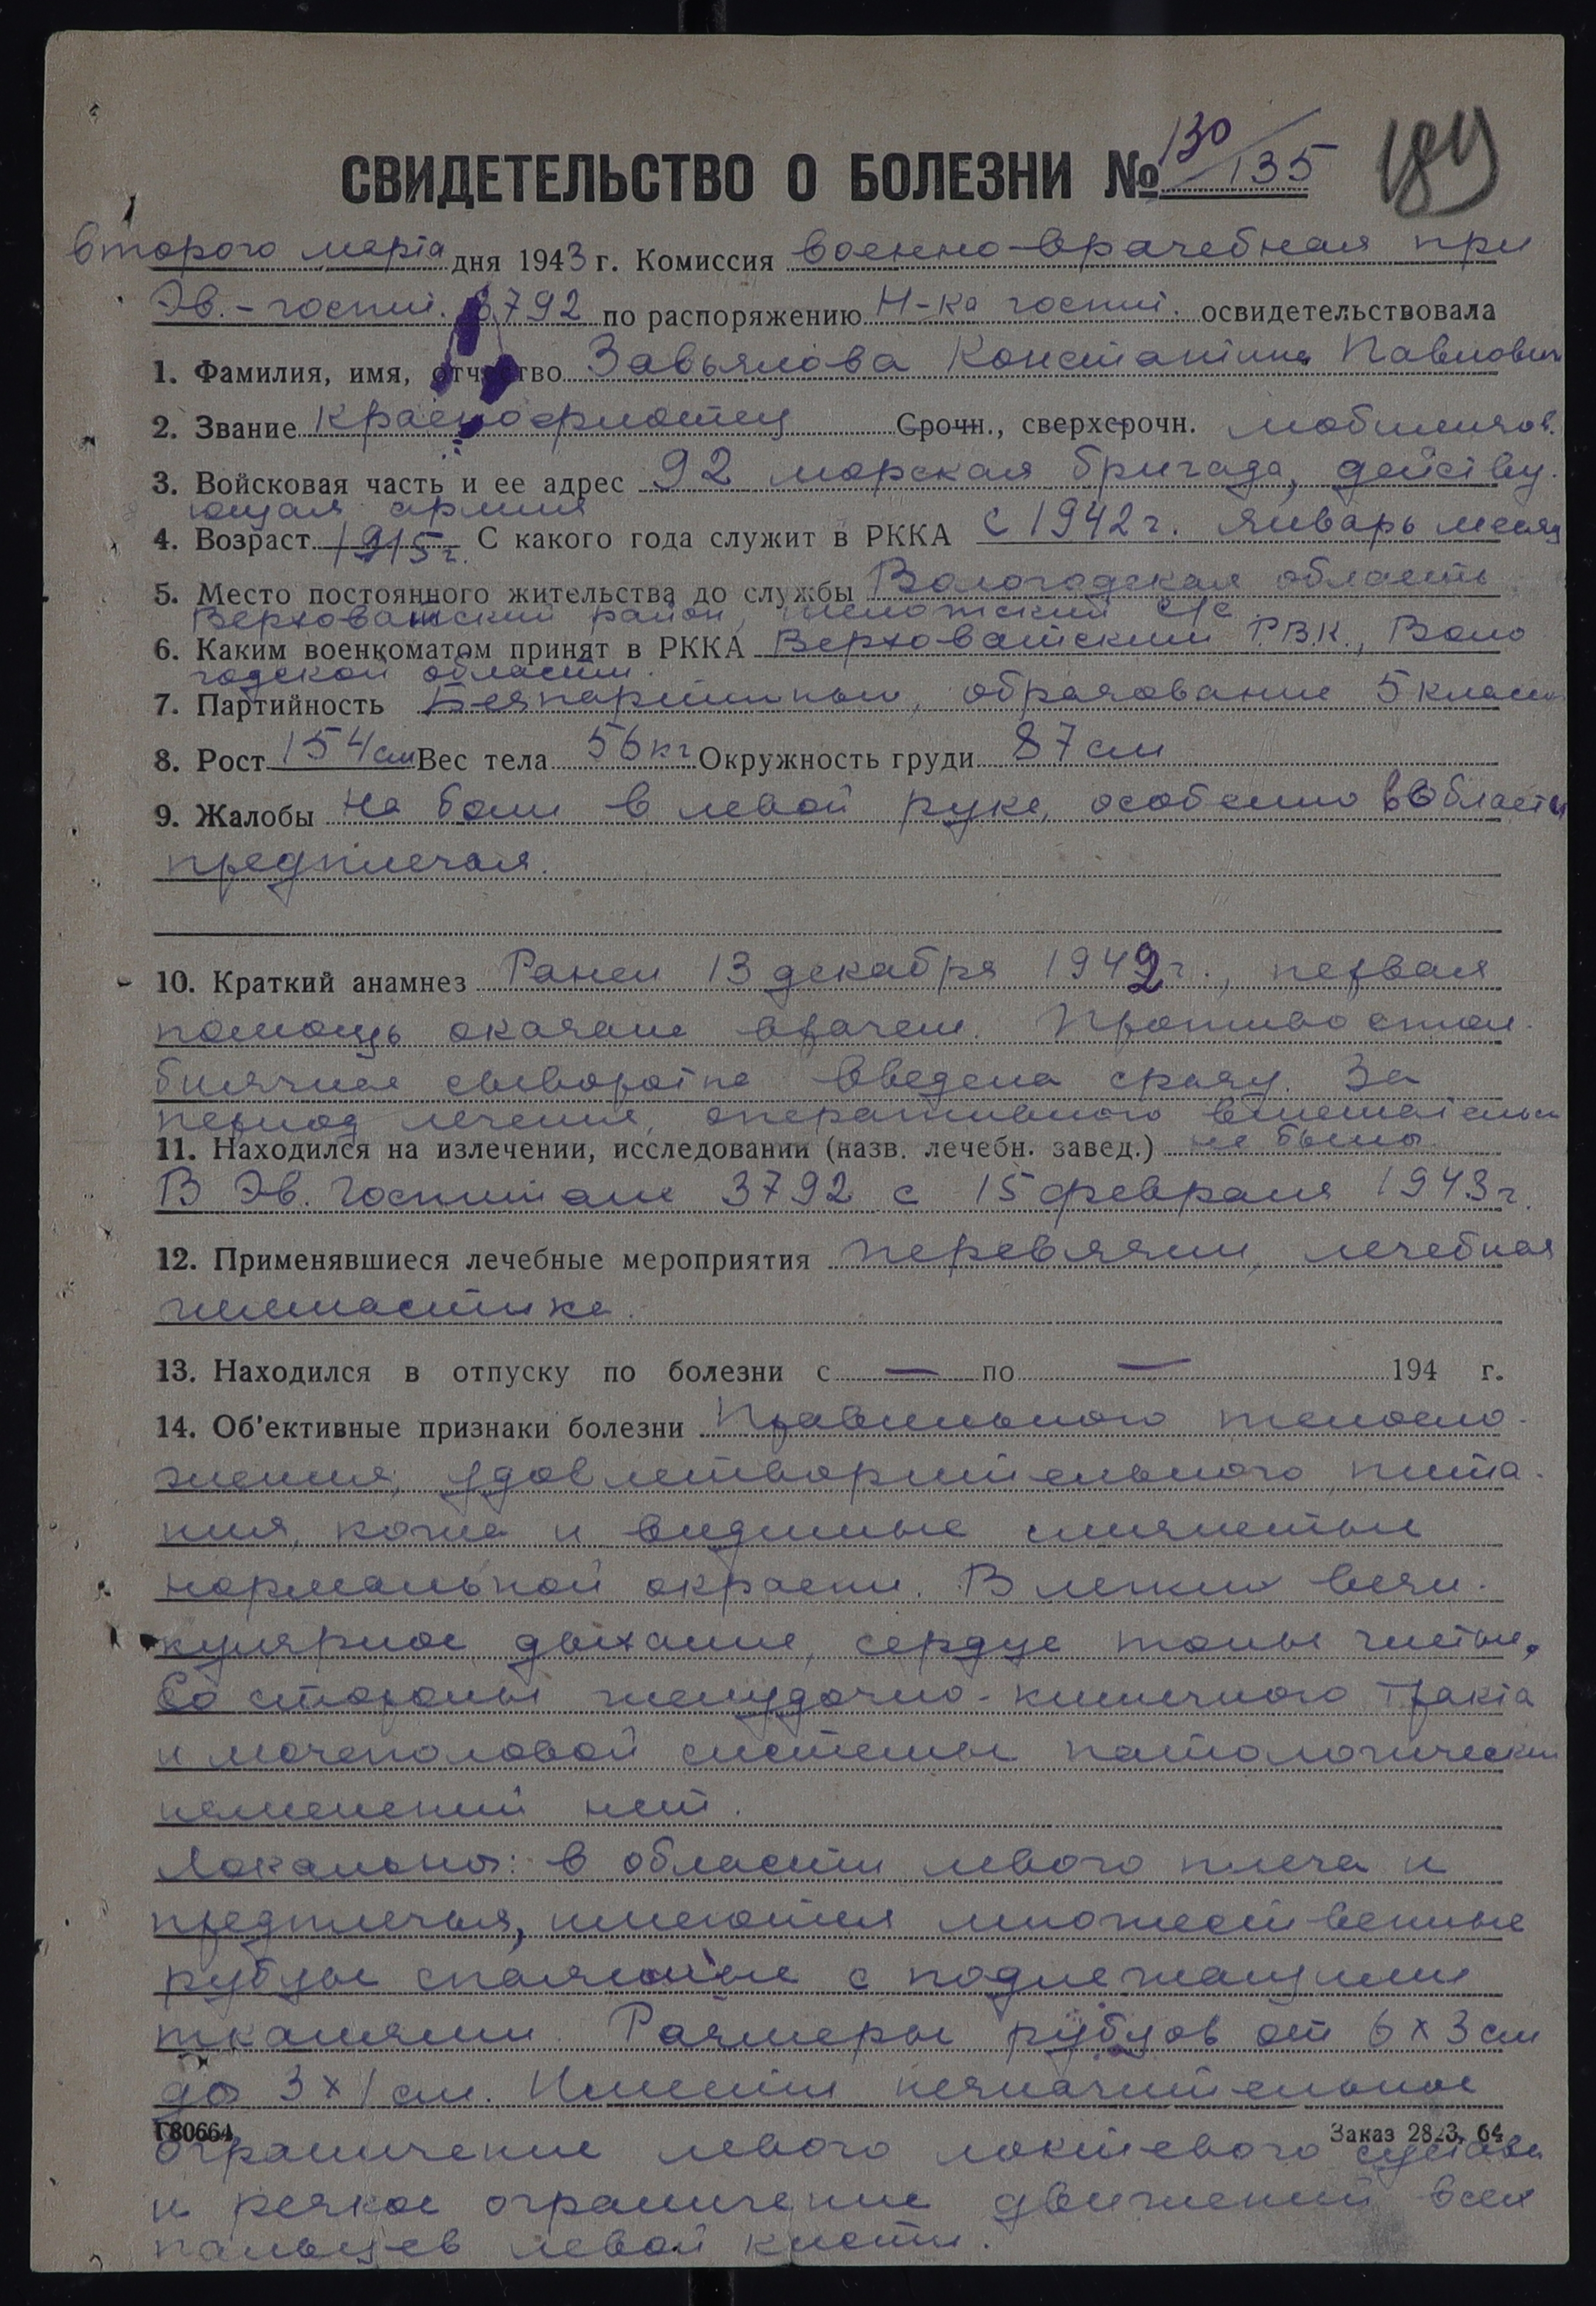 130
СВИДЕТЕЛЬСТВО О БОЛЕЗНИ № /135
второго марта дня 1943 г. Комиссия военно-врачебная при
Эв.-госпит. 3792 по распоряжению Н-ка госпит. освидетельствовала
1. Фамилия, имя, отчество Завьялова Константина Павлович
2. Звание Красноармеец Срочн., сверхсрочн. мобилизов.
3. Войсковая часть и ее адрес 92 морская бригада, действу.
ющая армия
4. Возраст 1915 г. С какого года служит в РККА с 1942 г. январь месяц
5. Место постоянного жительства до службы Вологодская область
Верховажский район, Шелотский с/с
6. Каким военкоматом принят в РККА Верховажским Р.В.К., Воло
годской области.
7. Партийность Беспартийный, образование 5 класс
8. Рост 154 см Вес тела 56 кг Окружность груди 87 см
9. Жалобы на боли в левой руке, особенно в области
предплечья.
10. Краткий анамнез Ранен 13 декабря 1942 г., первая
помощь оказана врачем. Противостол-
бнячная сыворотка введена сразу. За
период лечения, оперативного вмешательст
11. Находился на излечении, исследовании (назв. лечебн. завед.) не было
В Эв. Госпитале 3792 с 15 февраля 1943 г.
12. Применявшиеся лечебные мероприятия перевязки, лечебная
гимнастика.
13. Находился в отпуску по болезни с — по — 194 г.
14. Об'ективные признаки болезни Правильного телосло-
жения, удовлетворительного пита-
ния, кожа и видимые слизистые
нормальной окраски. В легких вези-
кулярное дыхание, сердце тоны чистые.
Со стороны желудочно-кишечного тракта
и мочеполовой системы патологических
изменений нет.
Локально: в области левого плеча и
предплечья, имеются множественные
рубцы спаянные с подлежащими
тканями. Размеры рубцов от 6 х 3 см
до 3 х 1 см. Имеется незначительное
Г80664 Заказ 2823. 64
ограничение левого локтевого сустава
и резкое ограничение движений всех
пальцев левой кисти.